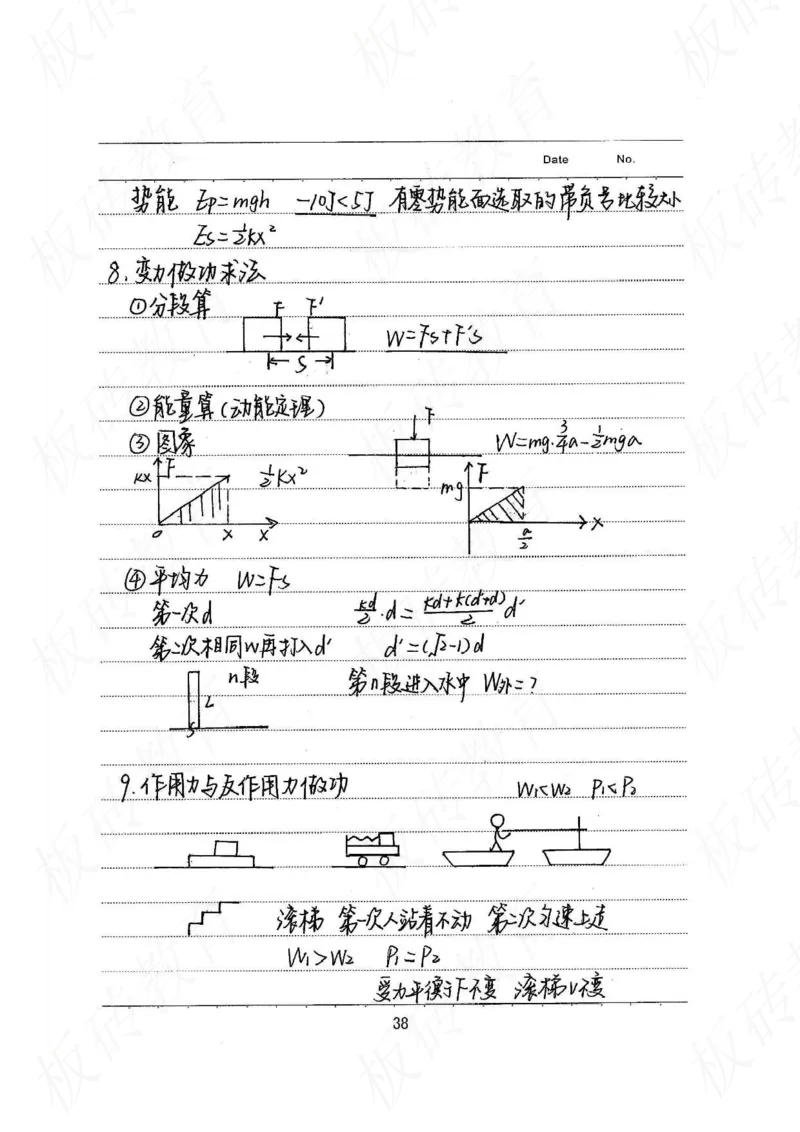 Date No.
势能 Ep=mgh -10J<5J 有零势能面选取的带负号比较大小
Es=½kx²
8.变力做功求法
①分段算
F F'
W=Fs+F's
S
②能量算(动能定理)
F
③图象
W=mg·¾a-½mga
F
kx
½kx²
F
mg
0 x x
x
a/2
④平均力 W=Fs
第一次d
kd/2·d=(kd+k(d'+d))/2 d'
第二次相同W再打入d' d'=(√2-1)d
n段
第n段进入水中 W外=?
L
S
9.作用力与反作用力做功
W₁<W₂ P₁<P₂
滚梯 第一次人站着不动 第二次匀速上走
W₁>W₂ P₁=P₂
受力平衡于F不变 滚梯v不变
38
板砖教育